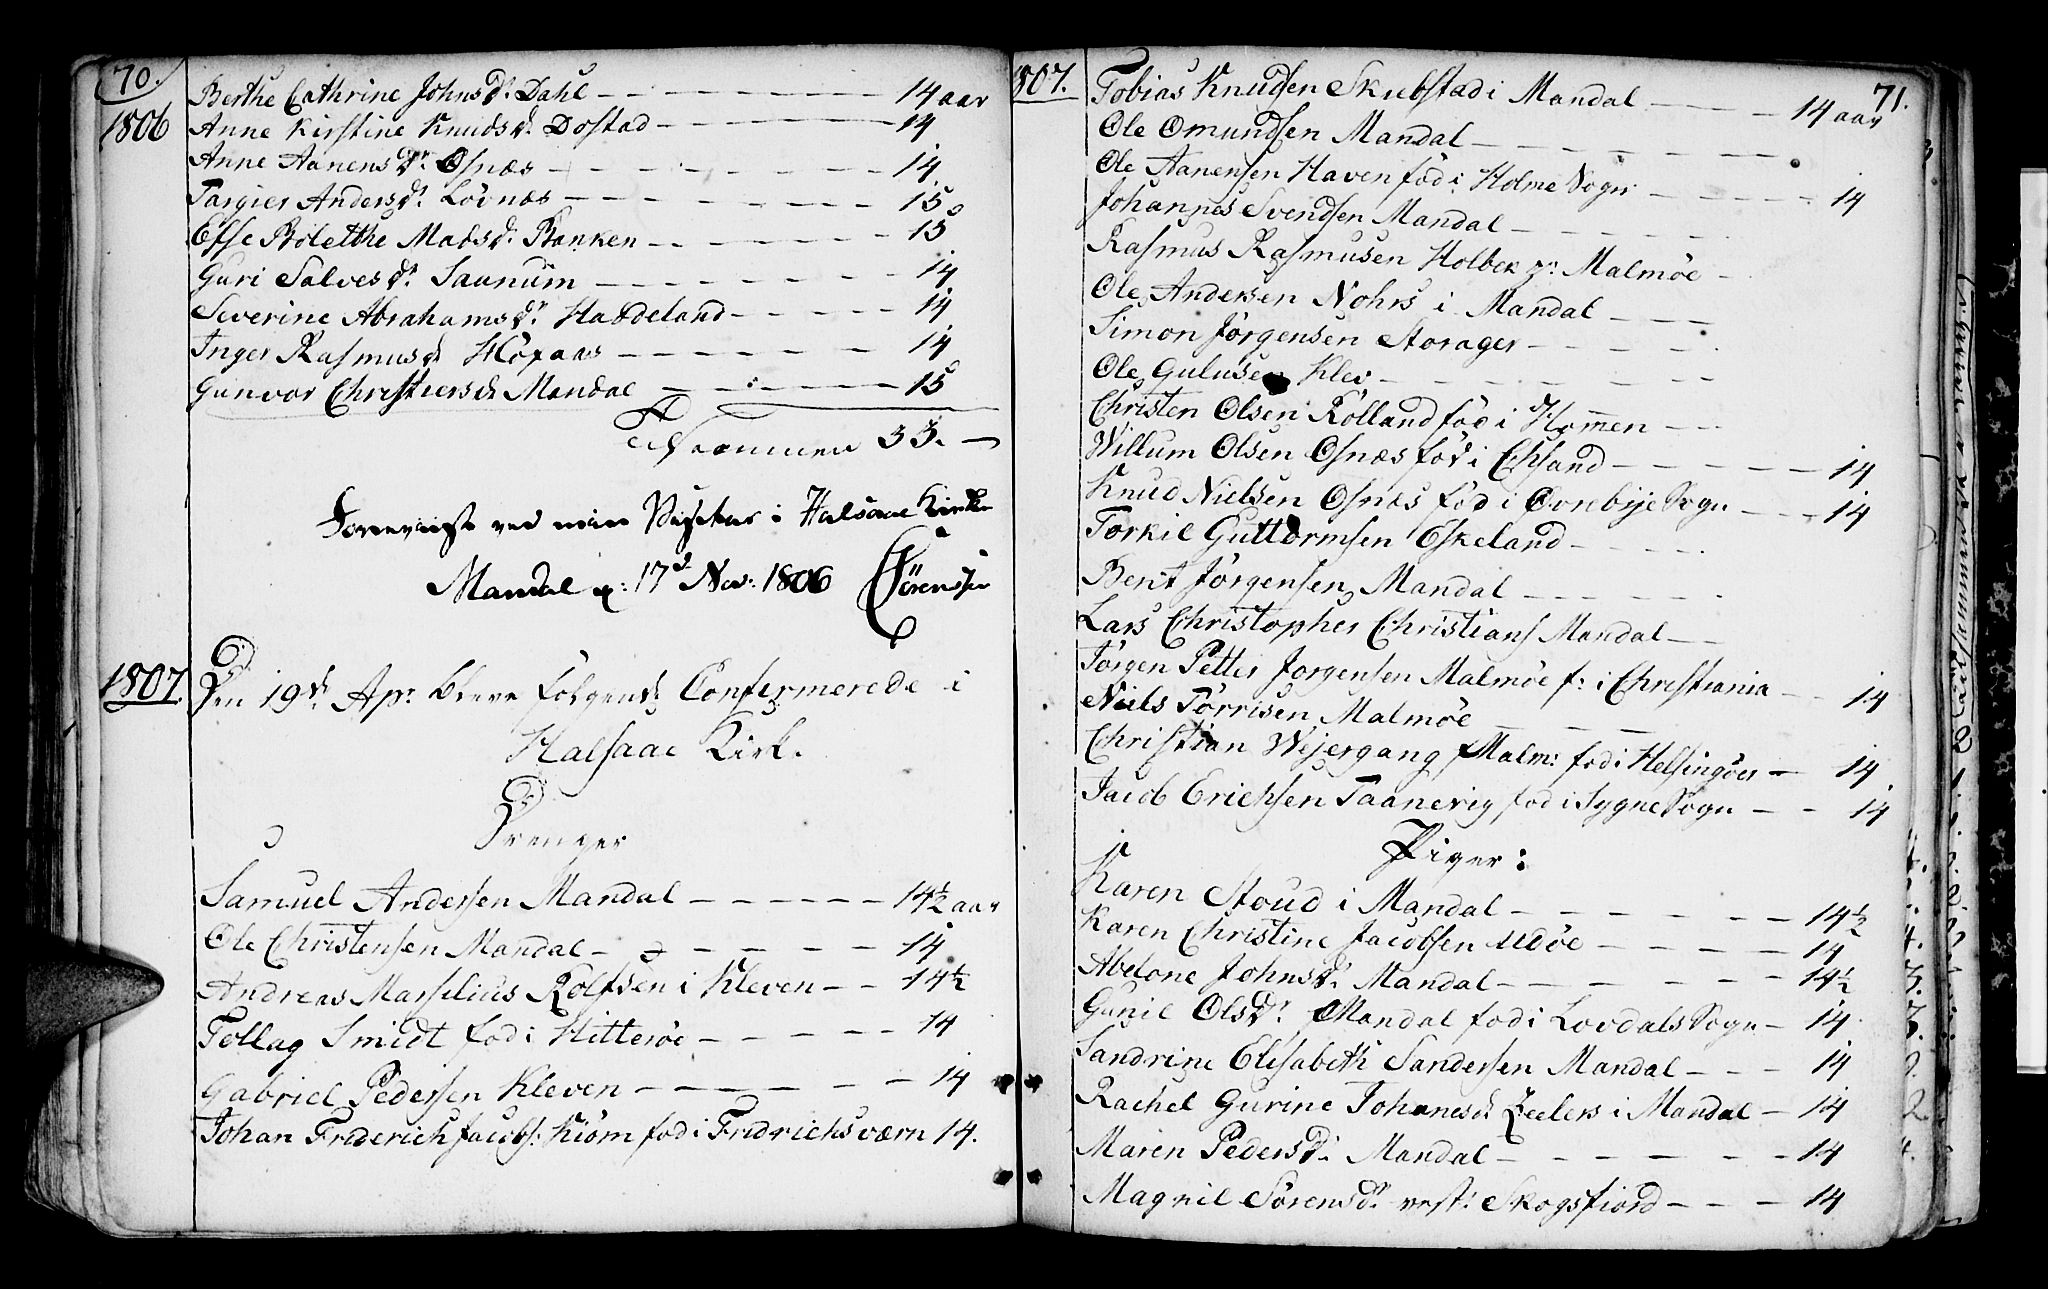 70.
1806
Berthe Cathrine Johnsdr. Dahl — 14 aar
Anne Kirstine Knudsdr. Dostad — 14
Anne Aanensdr. Osnæs — 14
Targier Andersdr. Lövnæs — 15
Else Bolethe Madsdr. Banken — 15
Guri Salvesdr. Saanum — 14
Severine Abrahamsdr. Haddeland — 14
Inger Rasmusd. — 14
Gunvor Christiersd. Mandal — 15
Tilsammen 33.
Foreviist ved min Visitas i Halsaae Kirke
Mandal d: 17d Nov: 1806 Sörenssen
1807.
Den 19de Apr. bleve fölgende Confermerede i
Halsaae Kirk.
Drenger
Samuel Andersen Mandal — 14½ aar
Ole Christensen Mandal — 14
Andreas Marselius Rolfsen i Kleven — 14½
Tollag Smidt föd i Hitteröe — 14
Gabriel Pedersen Kleven — 14
Johan Friderich Jacobs: Kiöm föd i Fridrichsværn 14.
1807.
71.
Tobias Knudsen Skubstad i Mandal — 14 aar
Ole Omundsen Mandal —
Ole Aanensen Haven föd i Holme Sogn — 14
Johannes Svendsen Mandal —
Rasmus Rasmusen Holbek Malmöe —
Ole Andersen Nohrs i Mandal —
Simon Jörgensen Storager —
Ole Gulusen Klev —
Christen Olsen Rolland föd i Hommen —
Willum Olsen Osnæs föd i Chsand — 14
Knud Nielsen Osnæs föd i Övrebye Sogn — 14
Torkil Guttormsen Eskeland —
Berit Jörgensen Mandal —
Lars Christopher Christians Mandal —
Jörgen Petter Jörgensen Malmöe f: i Christiania — 14
Niels Törrisen Malmöe —
Christian Wejergang Malm: föd i Helsingöer — 14
Jacob Erichsen Taanevig föd i Sygne Sogn — 14
Piger:
Karen Stoud i Mandal — 14½
Karen Christine Jacobsen Udöe — 14
Abelone Johnsdr. Mandal — 14½
Gunil Olsdr. Mandal föd i Lovdals Sogn — 14
Sandrine Elisabeth Sandersen Mandal — 14
Rachel Gurine Johanesd. Zeelers i Mandal — 14
Maren Pedersd: Mandal — 14
Magnil Sörensdr. vest: Skogsfiord — 14